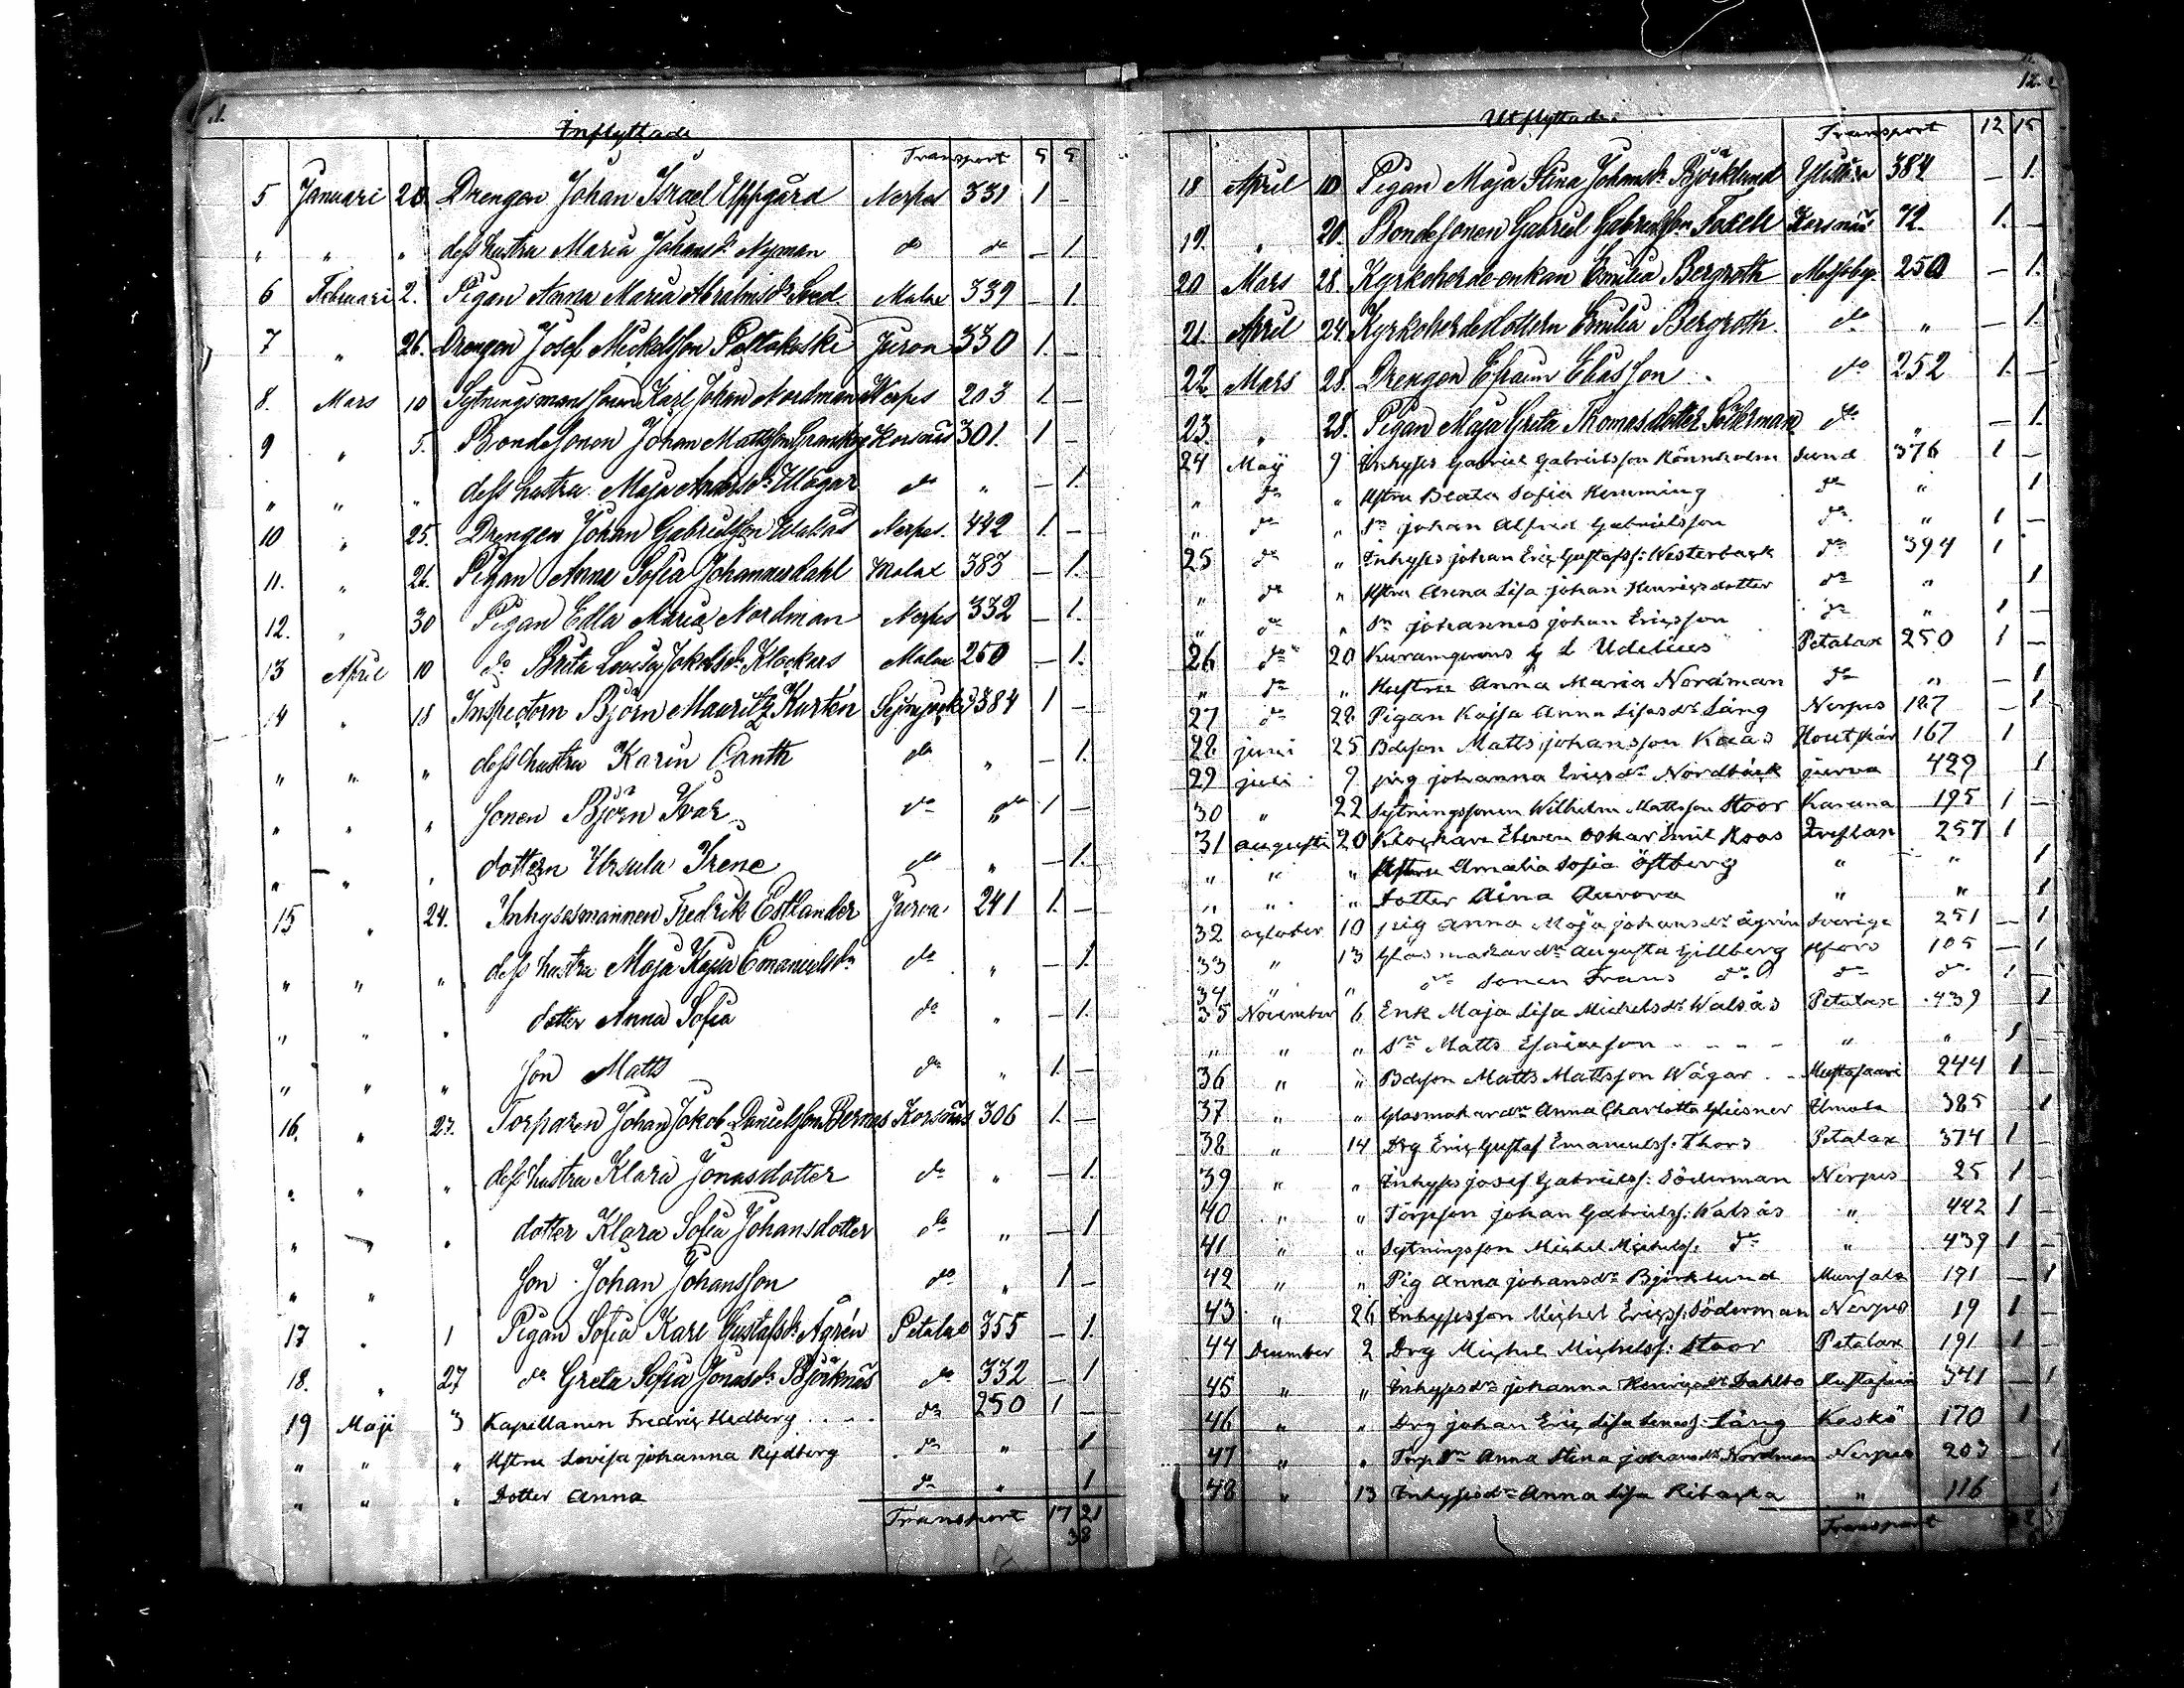 Inflyttade
Transport 5 5
5 Januari 28. Drengen Johan Israel Uppgård Nerpes 331 1 –
" " " dess hustru Maria Johansdr Nyman do do – 1.
6 Februari 2. Pigan Anna Maria Abrahmsdr Sved Malax 339 – 1.
7 " 26. Drengen Josef Mickelsson Jurva 330 1. –
8. Mars 10 Sytningsmanssonen Karl Johan Nordman Nerpes 203 1. –
9 " 5. Bondesonen Johan Mattsson Granskog Korsnäs 301. 1 –
" " " dess hustru Maja Andersdr Wägar do " – 1.
10 " 25. Drengen Johan Gabrielsson Walsås Nerpes. 442 1. –
11. " 26. Pigan Anna Sofia Johannesdahl Malax 383 – 1.
12. " 30 Pigan Edla Maria Nordman Nerpes 332 – 1.
13 April 10 do Brita Lovisa Jakobsdr Klockars Malax 260 – 1.
14 " 18 Inspectorn Björn Mauritz Kurtén Seinjoki 384 1 –
" " " dess hustru Karin Canth do " – 1.
" " " sonen Björn Ivar do do 1 –
" " " dottern Ursula Irene do " – 1.
15 " 24. Inhysesmannen Fredrik Estlander Jurva 241 1. –
" " " dess hustru Maja Kajsa Emanuelsdr do " – 1.
" " " dotter Anna Sofia do " – 1.
" " " son Matts do " 1. –
16. " 27. Torparen Johan Jakob Danielsson Bernas Korsnäs 306 1. –
" " " dess hustru Klara Jonasdotter do " – 1.
" " " dotter Klara Sofia Johansdotter do " – 1
" " son Johan Johansson do " 1 –
17 " 1 Pigan Sofia Karl Gustafsdr Ågrén Petalax 355 – 1.
18. " 27 do Greta Sofia Jonasdr Björknäs do 332 – 1
19 Maji 3 Kapellanen Fredrig Hedberg do 250 1 –
" " " Hstru Lovisa Johanna Rydberg do " 1
" " " Dotter Anna do " 1
Transport 17 21
38
12.
Utflyttade
Transport 12 15
18 April 10 Pigan Maja Stina Johansdr Björklund 384 – 1.
19. " 20. Bondesonen Gabriel Gabrielsson Toxell Korsnäs 72. 1. –
20 Mars 28. Kyrkoherde-enkan Emilia Bergroth 250 – 1.
21. April 24. Kyrkoherdedottern Emilia Bergroth. do " – 1.
22 Mars 28. Drengen Efraim Eliasson do 252 1. –
23. " 28. Pigan Maja Greta Thomasdotter Söderman do " – 1.
24 Maij 9 Inhyses Gabriel Gabrielsson Rönnholm Sund 376 1 –
" do " Hstru Beata Sofia Hemming do " 1
" do " Sn Johan Alfred Gabrielsson do " 1 –
25 do " Inhyses Johan Eric Gustafss: Westerback do 394 1
" do " Hstru Anna Lisa Johan Henricsdotter do " 1
" do " Sn Johannes Johan Ericsson do " 1 –
26 do 20 G L Udelius Petalax 250 1 –
" do " Hustru Anna Maria Nordman do " – 1
27 do 22 Pigan Kajsa Anna Lisasdr Lång Nerpes 187 – 1
28 juni 25 Bdeson Matts Johansson Kaas Houtskär 167 1
29 juli 9 pig Johanna Ericsdr Nordbäck jurva 429 1
30 " 22 Sytningssonen Wilhelm Mattsson Stoor Karuna 195 1 –
31 augusti 20 Klockare Eleven Oskar Emil Roos Qveflax 257 1
" " " Hstru Amalia Sofia Östberg " " 1
" " " Dotter Aina Aurora " " 1
32 october 10 pig Anna Maja Johansdr Ågrén Sverige 251 – 1
33 " 13 Glasmakardr Augusta Gillberg Hfors 105 – 1
34 " " do Sonen Frans do do do 1 –
35 November 6 Enk Maja Lisa Michelsdr Walsås Petalax 439 1
" " " Sn Matts Esaiasson " " 1 –
36 " " Bdeson Matts Mattsson Wägar Mustasaari 244 1 –
37 " " Glasmakardr Anna Charlotta Gleisner Ilmola 385 1
38 " 14 Drg Eric Gustaf Emanuelss: Thors Petalax 374 1 –
39 " " Inhyses Josef Gabrielss: Söderman Nerpes 25 1 –
40 " " Torpson Johan Gabrielss: Walsås " 442 1 –
41 " " Sytningsson Michel Michelss: do " 439 1 –
42 " " Pig Anna Johansdr Björklund Munsala 191 – 1
43 " 26 Inhysesson Michel Ericss: Söderman Nerpes 19 1 –
44 December 2 Drg Michel Michelss: Stoor Petalax 191 1 –
45 " " Inhysesdr Johanna Henricsdr Dahlbo 341 – 1
46 " " Drg Johan Eric Lång Kaskö 170 1
47 " " Torp Dr Anna Stina Johansdr Nordman Nerpes 203 – 1
48 " 13 Inhysesdr Anna Lisa Ribacka " 116 1
Transport